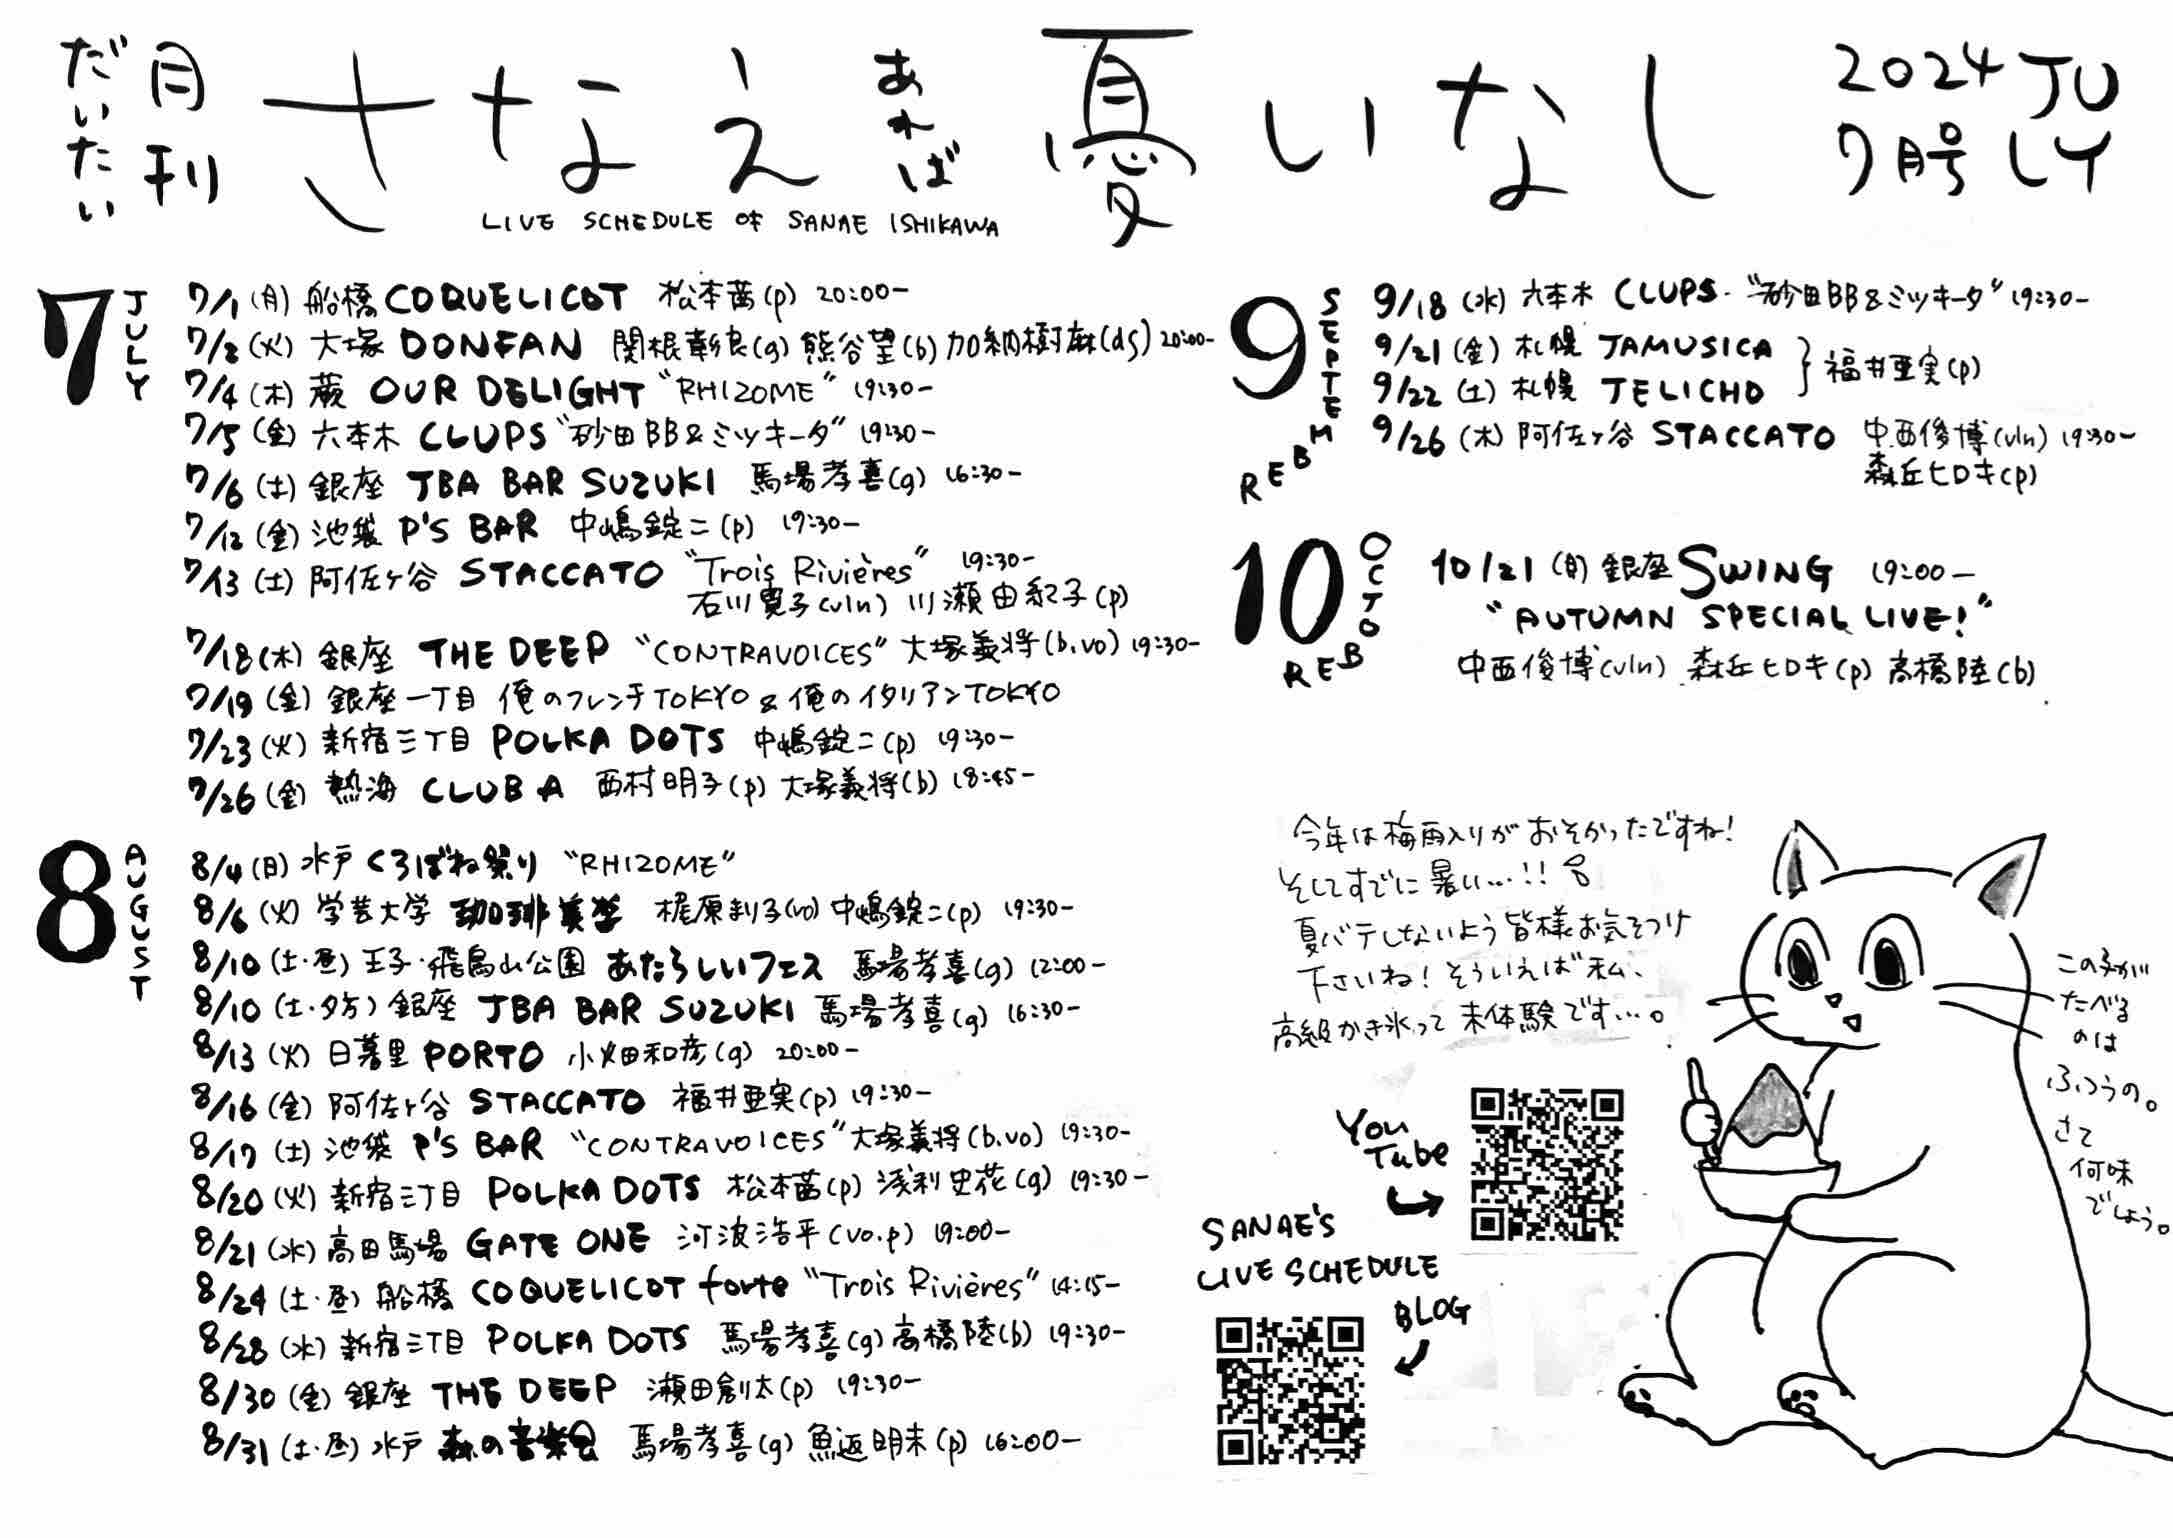 だいたい
月刊
さなえ あれば 憂いなし
2024 JULY
7月号
LIVE SCHEDULE OF SANAE ISHIKAWA
7 JULY
7/1 (月) 船橋 COQUELICOT 松本茜(p) 20:00-
7/2 (火) 大塚 DONFAN 関根彰良(g) 熊谷望(b) 加納樹麻(ds) 20:00-
7/4 (木) 蕨 OUR DELIGHT "RHIZOME" 19:30-
7/5 (金) 六本木 CLUPS "砂田BB&ミッキータ" 19:30-
7/6 (土) 銀座 JBA BAR SUZUKI 馬場孝喜(g) 16:30-
7/12 (金) 池袋 P'S BAR 中嶋錠二(p) 19:30-
7/13 (土) 阿佐ヶ谷 STACCATO "Trois Rivières" 19:30-
石川寛子(vln) 川瀬由紀子(p)
7/18 (木) 銀座 THE DEEP "CONTRAVOICES" 大塚義将(b.vo) 19:30-
7/19 (金) 銀座一丁目 俺のフレンチTOKYO & 俺のイタリアンTOKYO
7/23 (火) 新宿三丁目 POLKA DOTS 中嶋錠二(p) 19:30-
7/26 (金) 熱海 CLUB A 西村明子(p) 大塚義将(b) 18:45-
8 AUGUST
8/4 (日) 水戸 くろばね祭り "RHIZOME"
8/6 (火) 学芸大学 珈琲美学 梶原まり子(vo) 中嶋錠二(p) 19:30-
8/10 (土・昼) 王子・飛鳥山公園 あたらしいフェス 馬場孝喜(g) 12:00-
8/10 (土・夕方) 銀座 JBA BAR SUZUKI 馬場孝喜(g) 16:30-
8/13 (火) 日暮里 PORTO 小畑和彦(g) 20:00-
8/16 (金) 阿佐ヶ谷 STACCATO 福井亜実(p) 19:30-
8/17 (土) 池袋 P'S BAR "CONTRAVOICES" 大塚義将(b.vo) 19:30-
8/20 (火) 新宿三丁目 POLKA DOTS 松本茜(p) 浅利史花(g) 19:30-
8/21 (水) 高田馬場 GATE ONE 河波浩平(vo.p) 19:00-
8/24 (土・昼) 船橋 COQUELICOT forte "Trois Rivières" 14:15-
8/28 (水) 新宿三丁目 POLKA DOTS 馬場孝喜(g) 高橋陸(b) 19:30-
8/30 (金) 銀座 THE DEEP 瀬田創太(p) 19:30-
8/31 (土・昼) 水戸 森の音楽会 馬場孝喜(g) 魚返明未(p) 16:00-
9 SEPTEMBER
9/18 (水) 六本木 CLUPS "砂田BB&ミッキータ" 19:30-
9/21 (金) 札幌 JAMUSICA
9/22 (土) 札幌 JELICHO } 福井亜実(p)
9/26 (木) 阿佐ヶ谷 STACCATO 中西俊博(vln) 19:30-
森丘ヒロキ(p)
10 OCTOBER
10/21 (月) 銀座 SWING 19:00-
"AUTUMN SPECIAL LIVE!"
中西俊博(vln) 森丘ヒロキ(p) 高橋陸(b)
今年は梅雨入りがおそかったですね!
そしてすでに暑い...!!
夏バテしないよう皆様お気をつけ
下さいね! そういえば私、
高級かき氷って未体験です...。
You
Tube
SANAE'S
LIVE SCHEDULE
BLOG
この子が
たべる
のは
ふつうの。
さて
何味
でしょう。